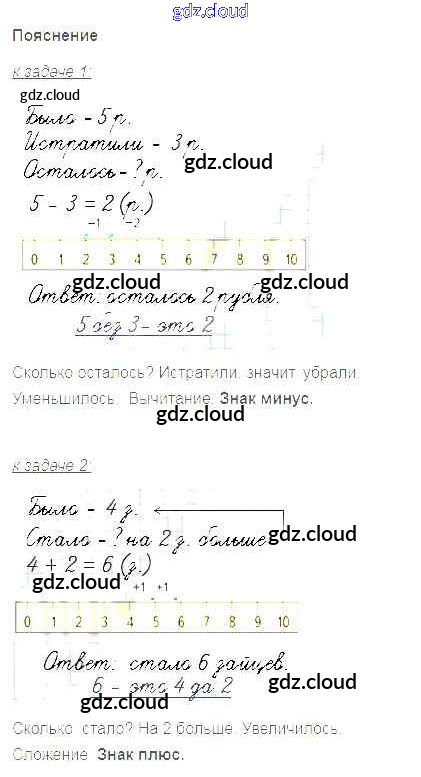 gdz.cloud
Пояснение
к задаче 1:
gdz.cloud
Было - 5 р.
Истратили - 3 р.
Осталось - ? р. gdz.cloud
5 - 3 = 2 (р.)
-1 -2
0 1 2 3 4 5 6 7 8 9 10
gdz.cloud gdz.cloud
Ответ: осталось 2 рубля.
5 без 3 - это 2 gdz.cloud
Сколько осталось? Истратили, значит, убрали.
Уменьшилось. Вычитание. Знак минус.
gdz.cloud
к задаче 2:
Было - 4 з.
gdz.cloud
Стало - ? на 2 з. больше
4 + 2 = 6 (з.)
gdz.cloud +1 +1
0 1 2 3 4 5 6 7 8 9 10
gdz.cloud
Ответ: стало 6 зайцев.
6 - это 4 да 2 gdz.cloud
gdz.cloud
Сколько стало? На 2 больше. Увеличилось.
Сложение. Знак плюс.